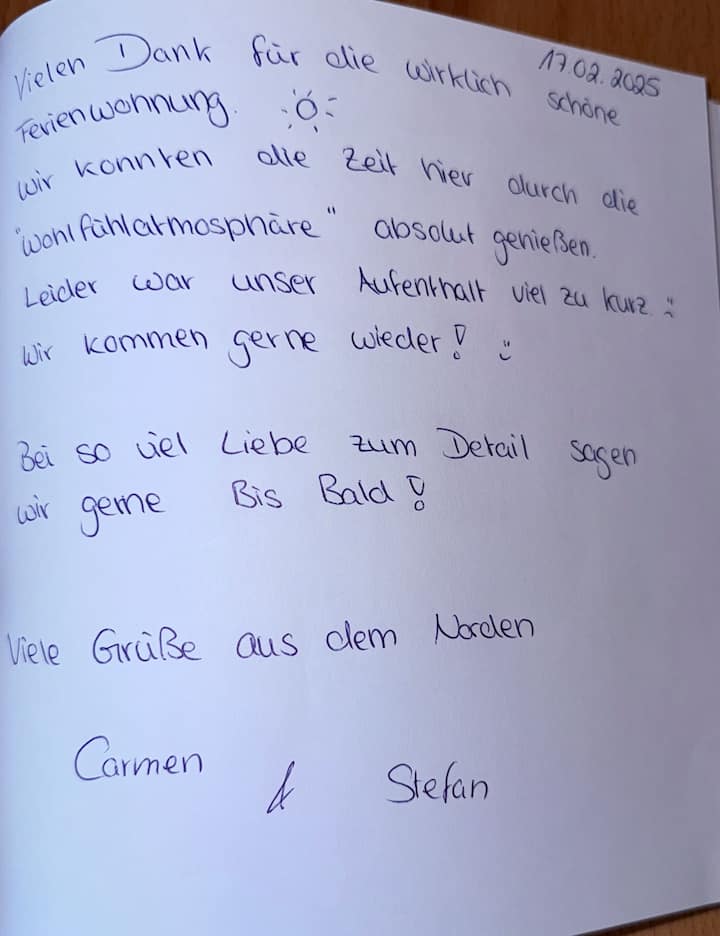 17.02.2025
Vielen Dank für die wirklich schöne
Ferienwohnung.
wir konnten die Zeit hier durch die
"wohlfühlatmosphäre" absolut genießen.
Leider war unser Aufenthalt viel zu kurz :(
wir kommen gerne wieder! :)
Bei so viel Liebe zum Detail sagen
wir gerne Bis Bald!
Viele Grüße aus dem Norden
Carmen & Stefan